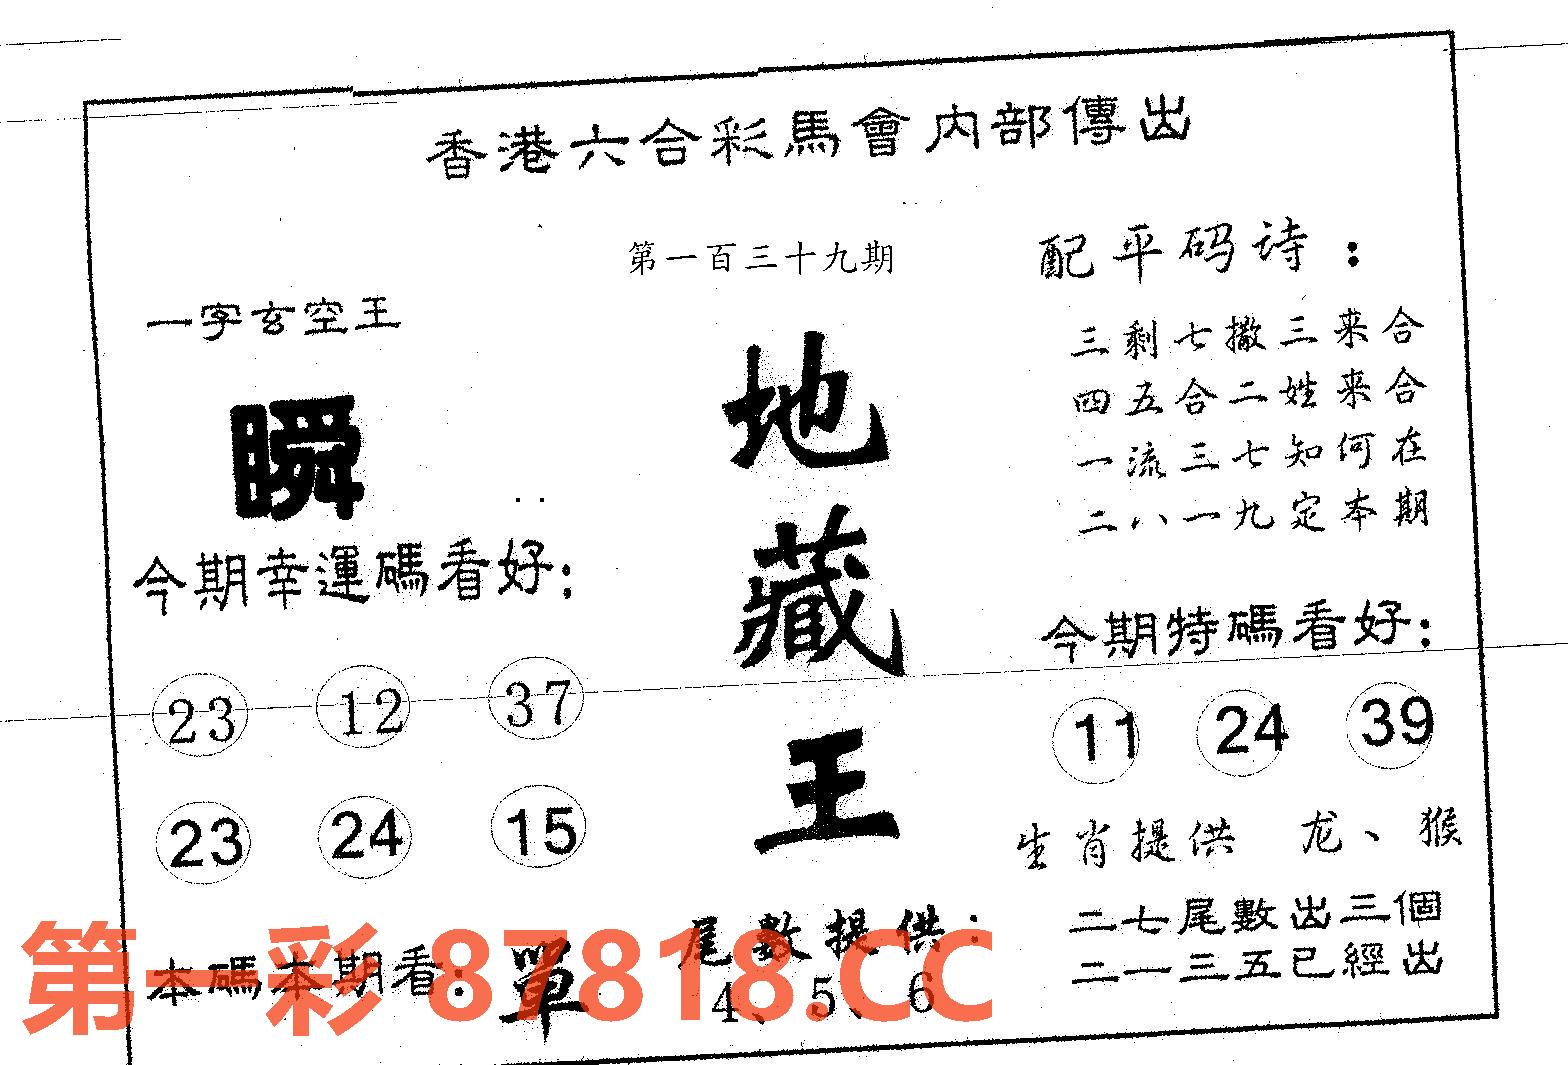 香港六合彩馬會內部傳出
第一百三十九期
一字玄空王
瞬
今期幸運碼看好:
23 12 37
23 24 15
本碼本期看: 單
地藏王
尾數提供:
4、5、6
配平码诗:
三剩七撒三来合
四五合二姓来合
一流三七知何在
二八一九定本期
今期特碼看好:
11 24 39
生肖提供 龙、猴
二七尾數出三個
二一三五已經出
第一彩 87818.CC